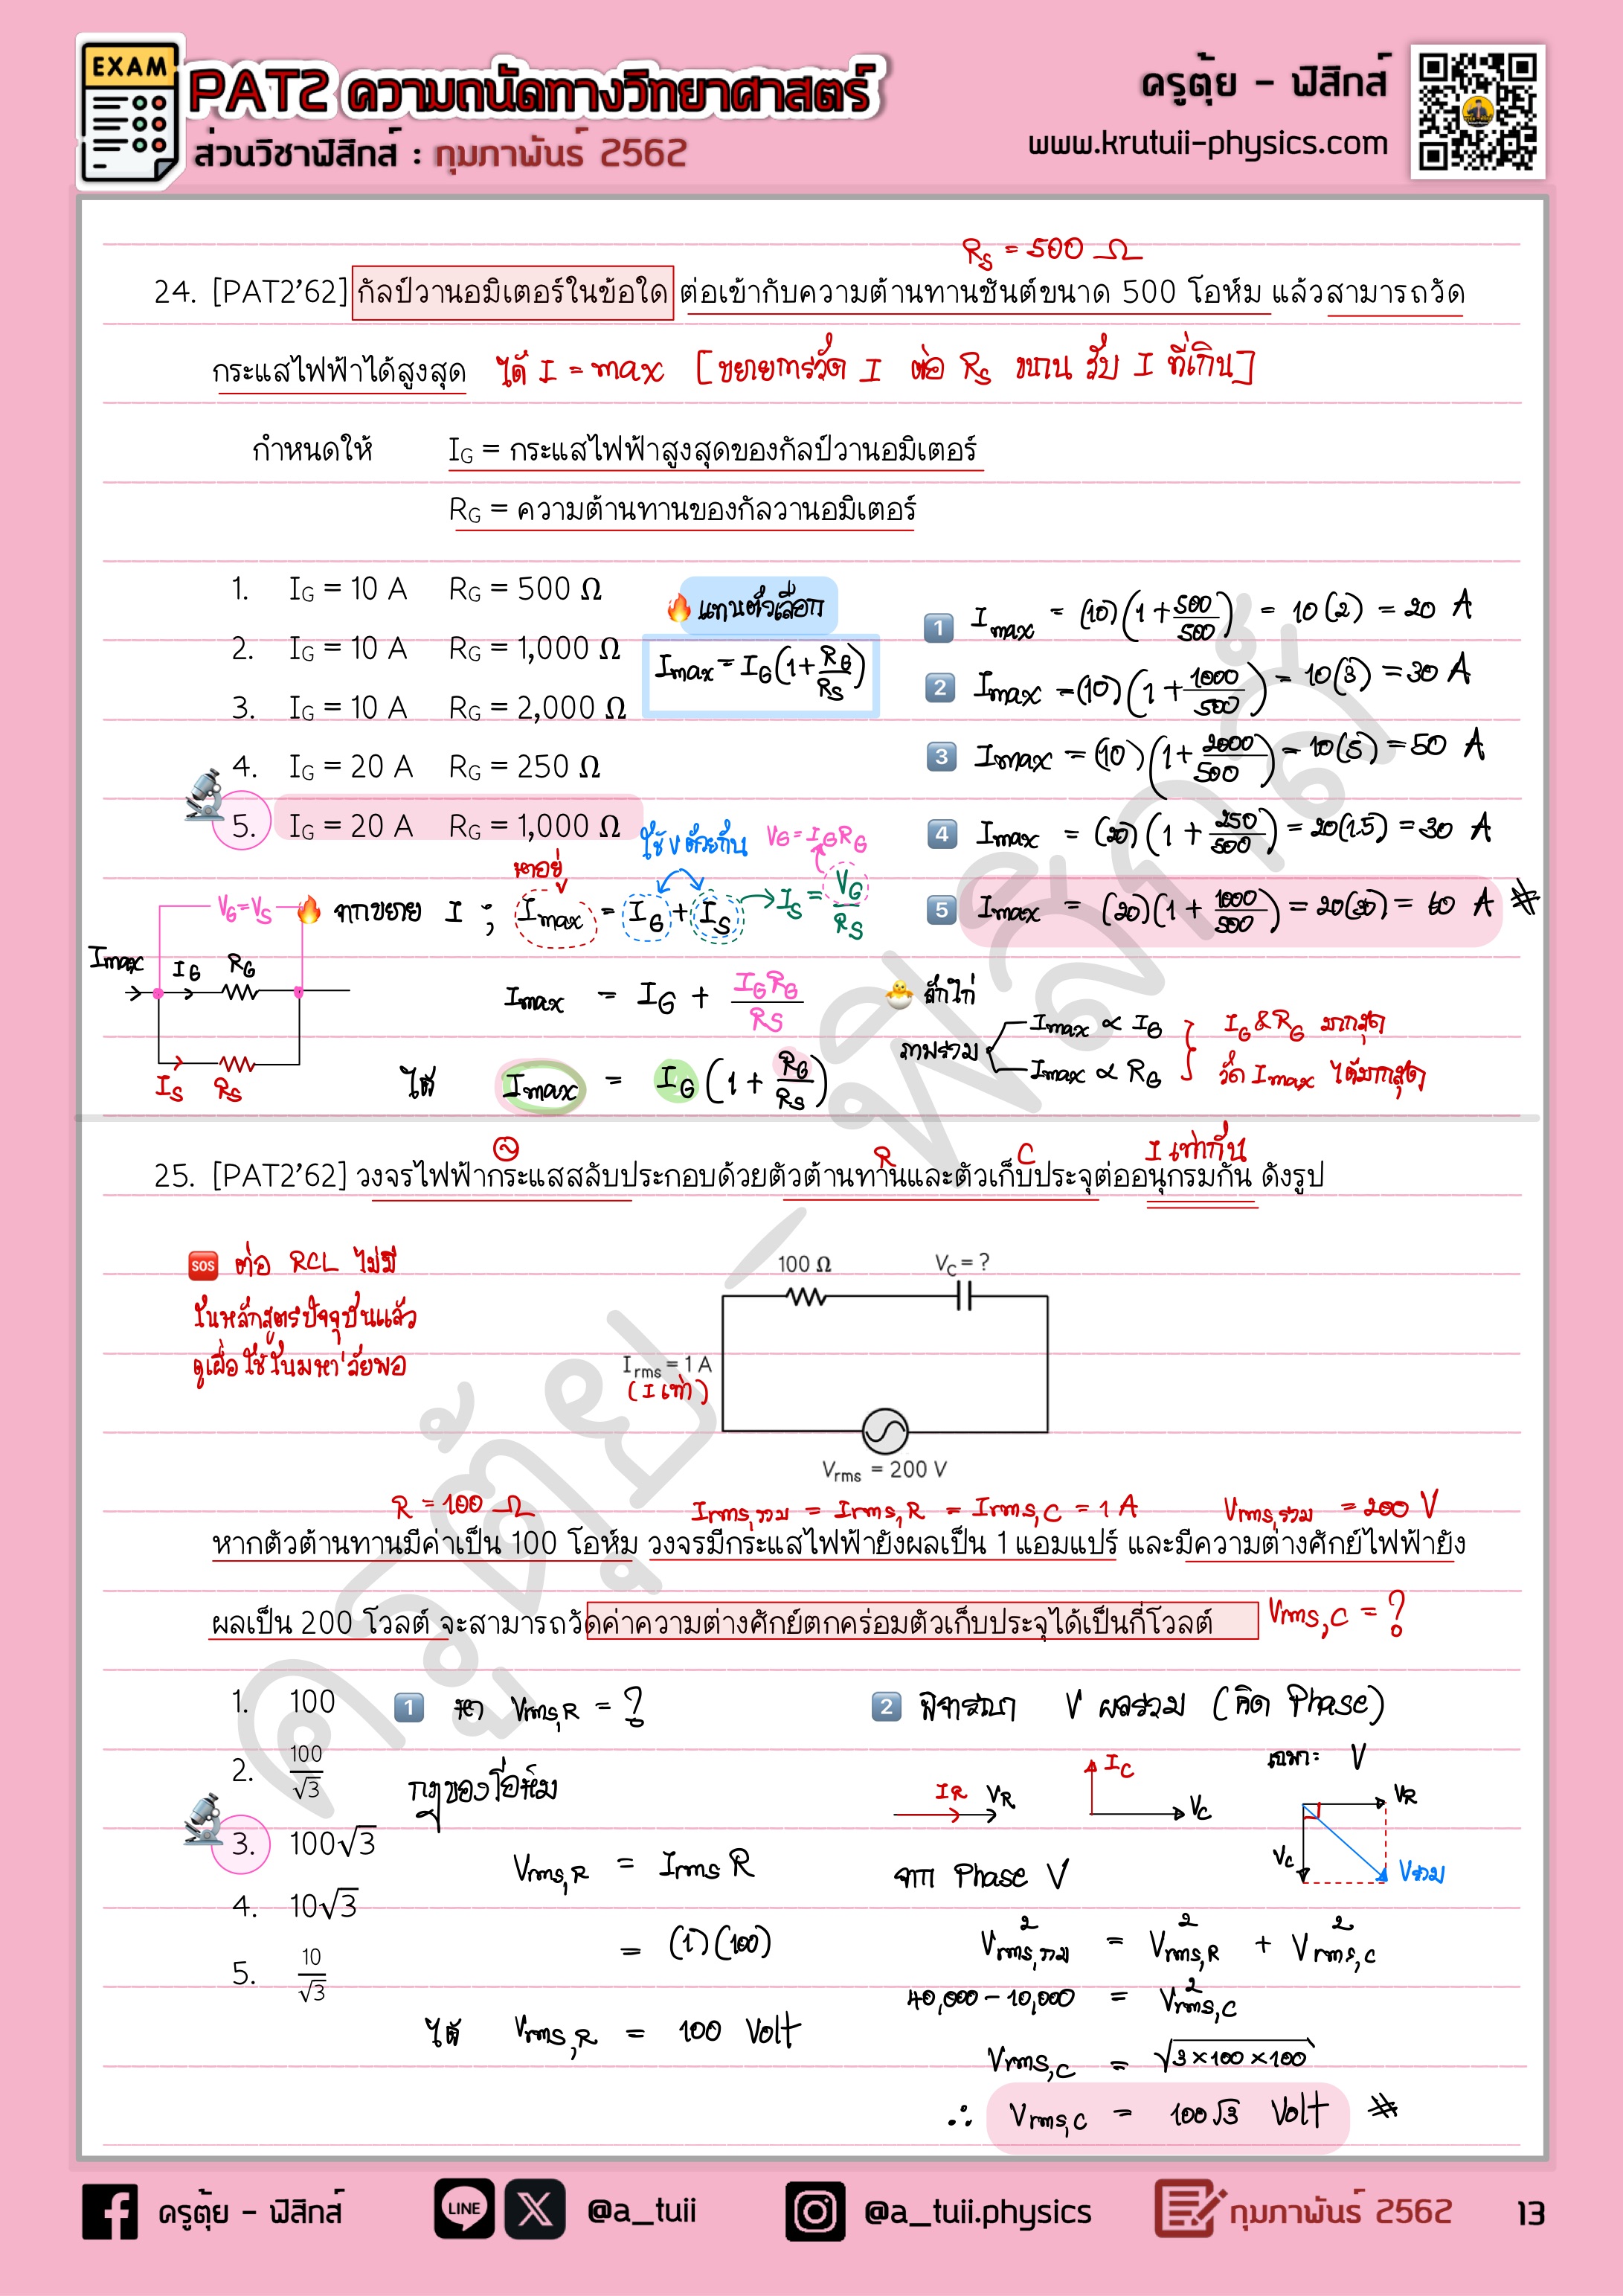 EXAM
PAT2 ความถนัดทางวิทยาศาสตร์
ส่วนวิชาฟิสิกส์ : กุมภาพันธ์ 2562
ครูตุ้ย - ฟิสิกส์
www.krutuii-physics.com
R_S = 500 Ω
24. [PAT2'62] กัลป์วานอมิเตอร์ในข้อใด ต่อเข้ากับความต้านทานชันต์ขนาด 500 โอห์ม แล้วสามารถวัด
กระแสไฟฟ้าได้สูงสุด ได้ I = max [ขยายการวัด I ต่อ R_S ขนาน รับ I ที่เกิน]
กำหนดให้ I_G = กระแสไฟฟ้าสูงสุดของกัลป์วานอมิเตอร์
R_G = ความต้านทานของกัลวานอมิเตอร์
1. I_G = 10 A R_G = 500 Ω
2. I_G = 10 A R_G = 1,000 Ω
3. I_G = 10 A R_G = 2,000 Ω
4. I_G = 20 A R_G = 250 Ω
5. I_G = 20 A R_G = 1,000 Ω
แทนตัวเลือก
I_max = I_G(1 + R_G/R_S)
1 I_max = (10)(1 + 500/500) = 10(2) = 20 A
2 I_max = (10)(1 + 1000/500) = 10(3) = 30 A
3 I_max = (10)(1 + 2000/500) = 10(5) = 50 A
4 I_max = (20)(1 + 250/500) = 20(1.5) = 30 A
5 I_max = (20)(1 + 1000/500) = 20(3) = 60 A #
หาอยู่
ใช้ V ด้วยกัน V_G = I_G R_G
V_G = V_S
จากขยาย I ; I_max = I_G + I_S → I_S = V_G/R_S
I_max I_G R_G
I_S R_S
I_max = I_G + I_G R_G/R_S
ได้ I_max = I_G(1 + R_G/R_S)
ลักไก่
ภาพรวม I_max ∝ I_G
I_max ∝ R_G
I_G & R_G มากสุด
วัด I_max ได้มากสุด
R C I เท่ากัน
25. [PAT2'62] วงจรไฟฟ้ากระแสสลับประกอบด้วยตัวต้านทานและตัวเก็บประจุต่ออนุกรมกัน ดังรูป
SOS ต่อ RCL ไม่มี
ในหลักสูตรปัจจุบันแล้ว
ดูเผื่อใช้ในมหา'ลัยพอ
100 Ω V_C = ?
I_rms = 1 A
(I เท่า)
V_rms = 200 V
R = 100 Ω I_rms,รวม = I_rms,R = I_rms,C = 1 A V_rms,รวม = 200 V
หากตัวต้านทานมีค่าเป็น 100 โอห์ม วงจรมีกระแสไฟฟ้ายังผลเป็น 1 แอมแปร์ และมีความต่างศักย์ไฟฟ้ายัง
ผลเป็น 200 โวลต์ จะสามารถวัดค่าความต่างศักย์ตกคร่อมตัวเก็บประจุได้เป็นกี่โวลต์ V_rms,C = ?
1. 100
2. 100/√3
3. 100√3
4. 10√3
5. 10/√3
1 หา V_rms,R = ?
กฎของโอห์ม
V_rms,R = I_rms R
= (1)(100)
ได้ V_rms,R = 100 Volt
2 พิจารณา V ผลรวม (คิด Phase)
I_R V_R
I_C V_C
เฉพาะ V
V_R
V_C
V รวม
จาก Phase V
V²_rms,รวม = V²_rms,R + V²_rms,C
40,000 - 10,000 = V²_rms,C
V_rms,C = √3×100×100
∴ V_rms,C = 100√3 Volt #
ครูตุ้ย - ฟิสิกส์
LINE
X
@a_tuii
@a_tuii.physics
กุมภาพันธ์ 2562
13